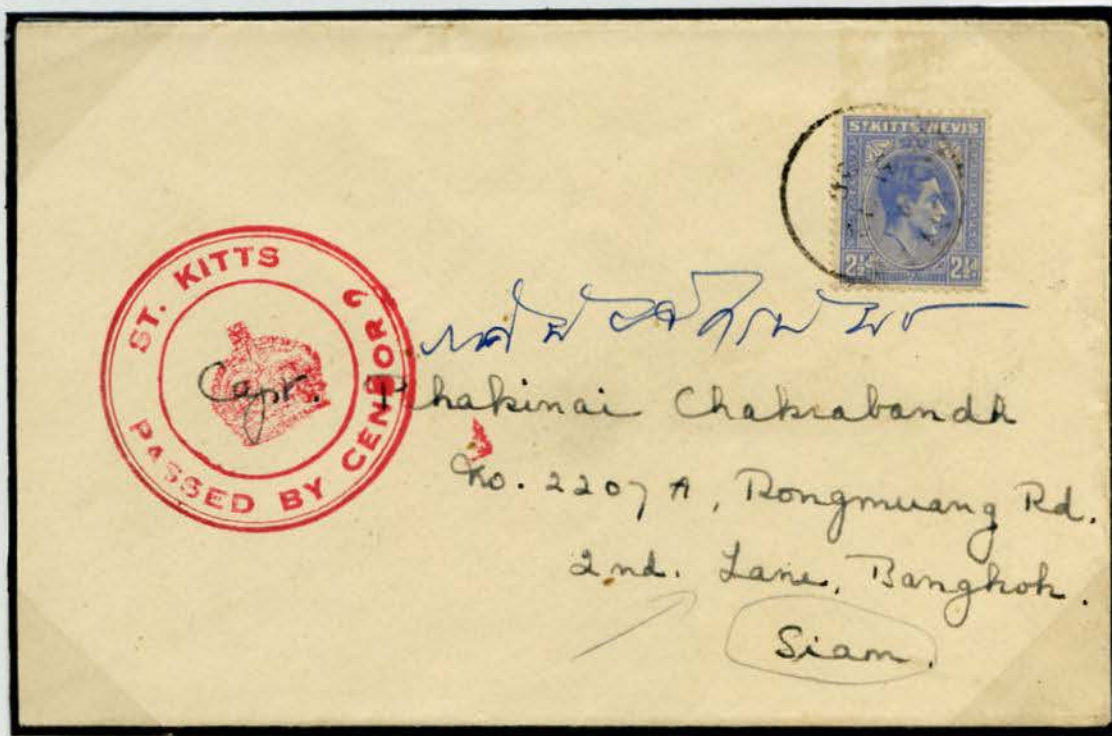 ST. KITTS-NEVIS
2½d 2½d
ST. KITTS
PASSED BY CENSOR 2
Capt. Phakinai Chakrabandh
No. 2207 A, Rongmuang Rd.
2nd. Lane, Bangkok.
Siam.